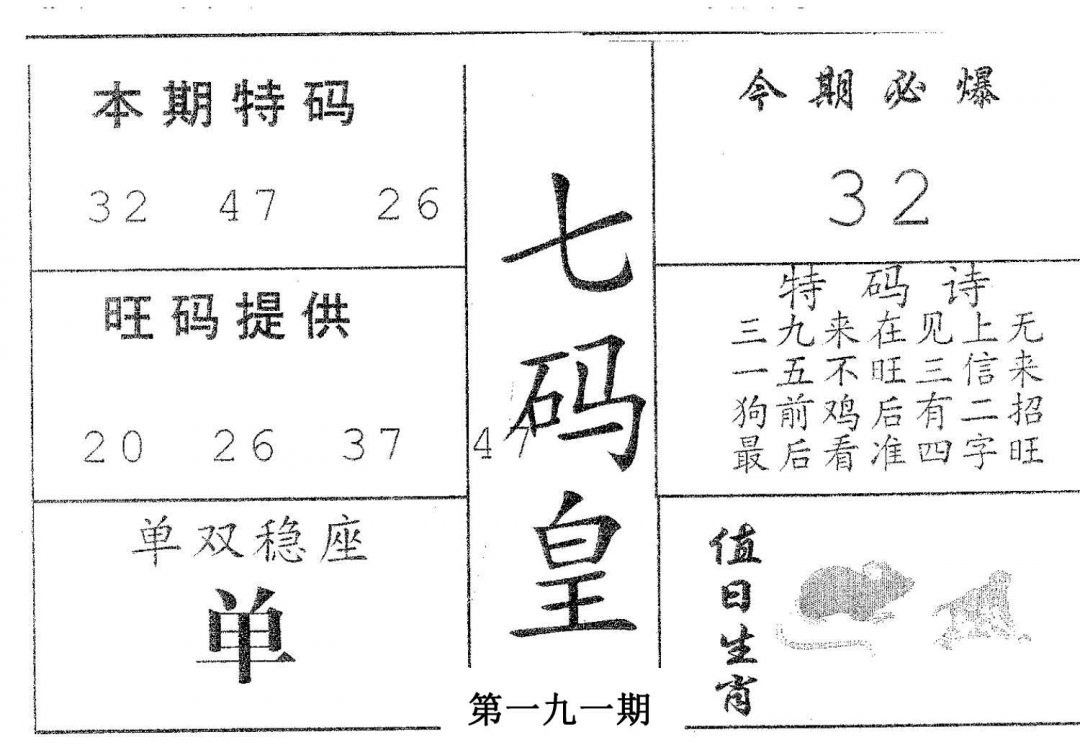 本期特码
32 47 26
旺码提供
20 26 37 47
单双稳座
单
七码皇
第一九一期
今期必爆
32
特码诗
三九来在见上无
一五不旺三信来
狗前鸡后有二招
最后看准四字旺
值日生肖